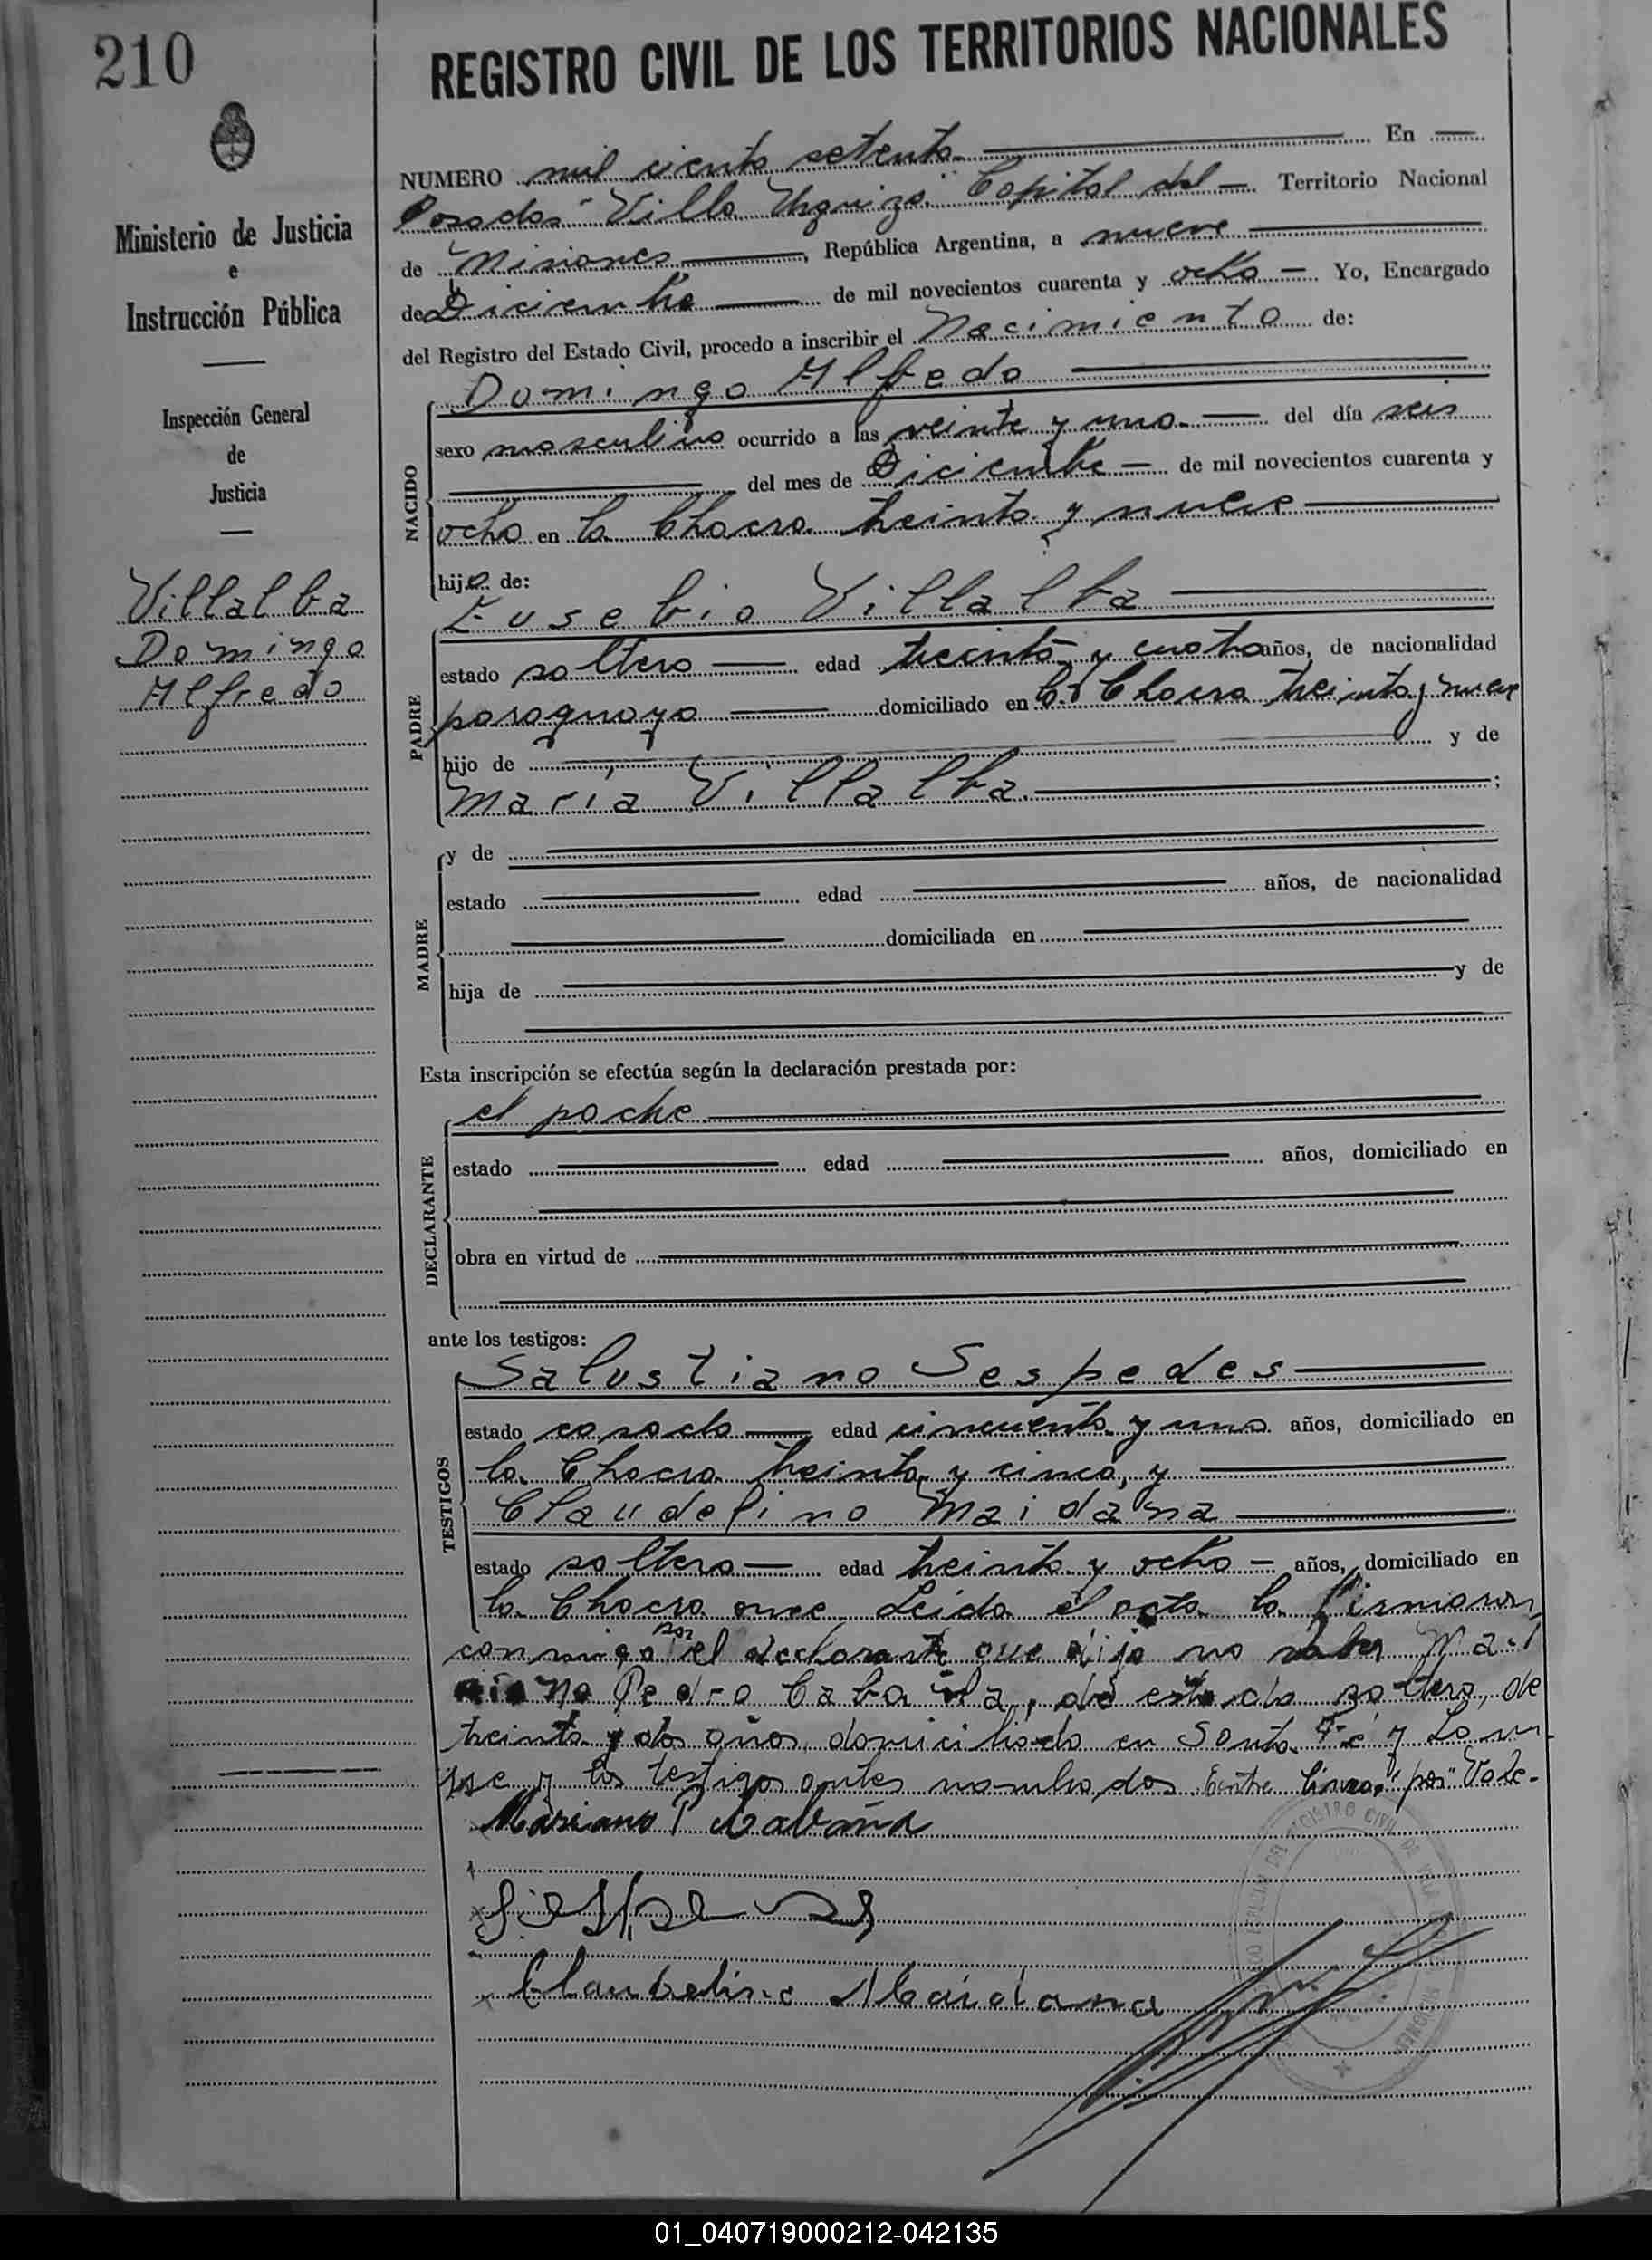 210
REGISTRO CIVIL DE LOS TERRITORIOS NACIONALES
Ministerio de Justicia
e
Instrucción Pública
Inspección General
de
Justicia
Villalba
Domingo
Alfredo
NUMERO mil ciento setenta En
Posadas "Villa Urquiza" Capital del Territorio Nacional
de Misiones, República Argentina, a nueve
de Diciembre de mil novecientos cuarenta y ocho Yo, Encargado
del Registro del Estado Civil, procedo a inscribir el Nacimiento de:
NACIDO
Domingo Alfredo
sexo masculino ocurrido a las veinte y una del día seis
del mes de Diciembre de mil novecientos cuarenta y
ocho en la Chacra treinta y nueve
hijo de:
PADRE
Eusebio Villalba
estado soltero edad treinta y cuatro años, de nacionalidad
paraguaya domiciliado en la Chacra treinta y nueve
hijo de y de
María Villalba ;
MADRE
y de
estado edad años, de nacionalidad
domiciliada en
hija de y de
Esta inscripción se efectúa según la declaración prestada por:
DECLARANTE
el padre
estado edad años, domiciliado en
obra en virtud de
ante los testigos:
TESTIGOS
Salustiano Sespedes
estado casado edad cincuenta y uno años, domiciliado en
la Chacra treinta y cinco, y
Claudelino Maidana
estado soltero edad treinta y ocho años, domiciliado en
la Chacra once. Leida el acta la firmaron
conmigo por el declarante que dijo no saber Ma
no Pedro Cabaña, de estado soltero, de
treinta y dos años, domiciliado en Santa Fé y
y los testigos antes nombrados. Entre lineas: "por" Vale.
Mariano P Cabaña
Claudelino Maidana
REGISTRO CIVIL DE VILLA
MISIONES
01_040719000212-042135